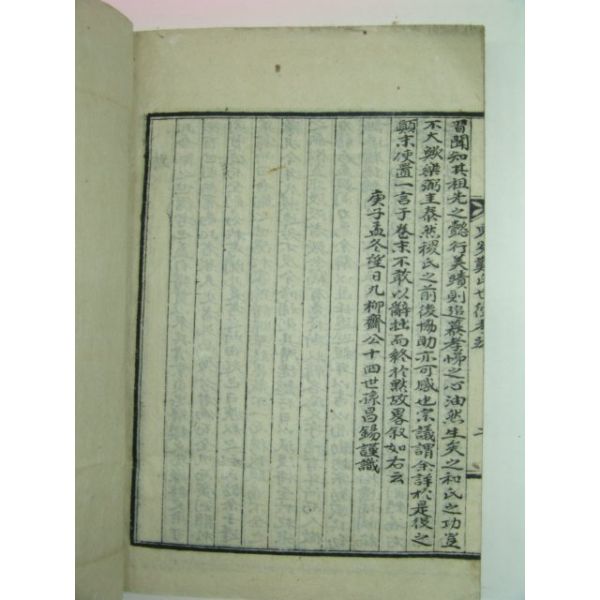 習聞知其祖先之懿行美蹟則追慕孝悌之心油然生矣之和氏之功豈
不大歟樂弼圭泰然稷氏之前後協助亦可感也宗議謂余詳於是役之
顚末使置一言于卷末不敢以辭拙而終於默故畧叙如右云
庚子孟冬望日九柳齋公十四世孫昌錫謹識
鄭氏世
二